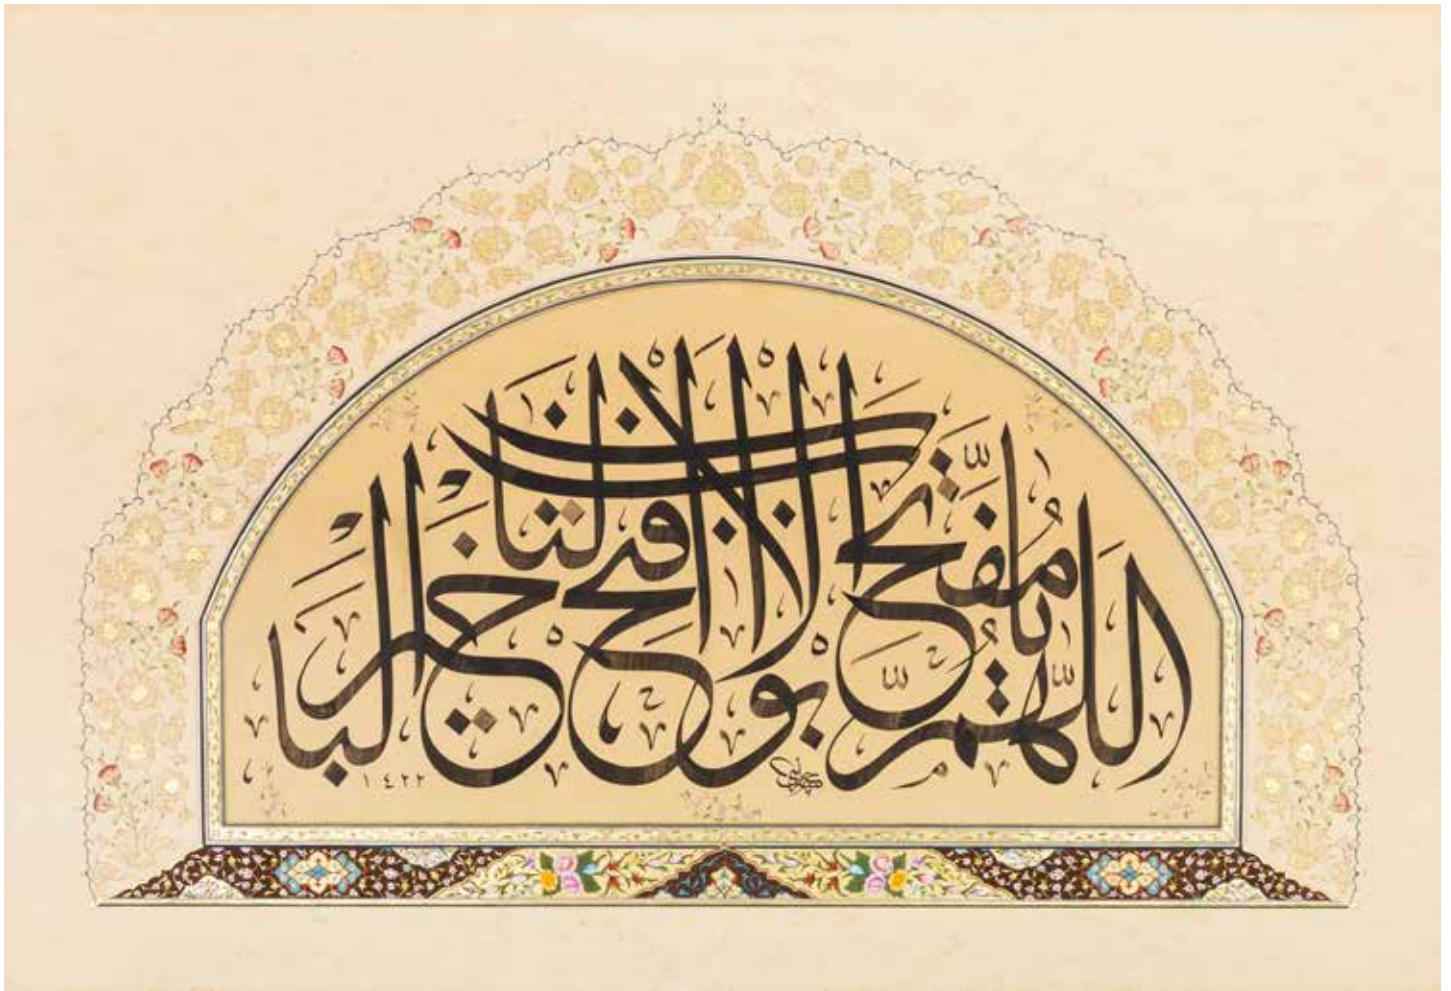 اللهم يا مفتح الابواب افتح لنا خير الباب
١٤٢٢